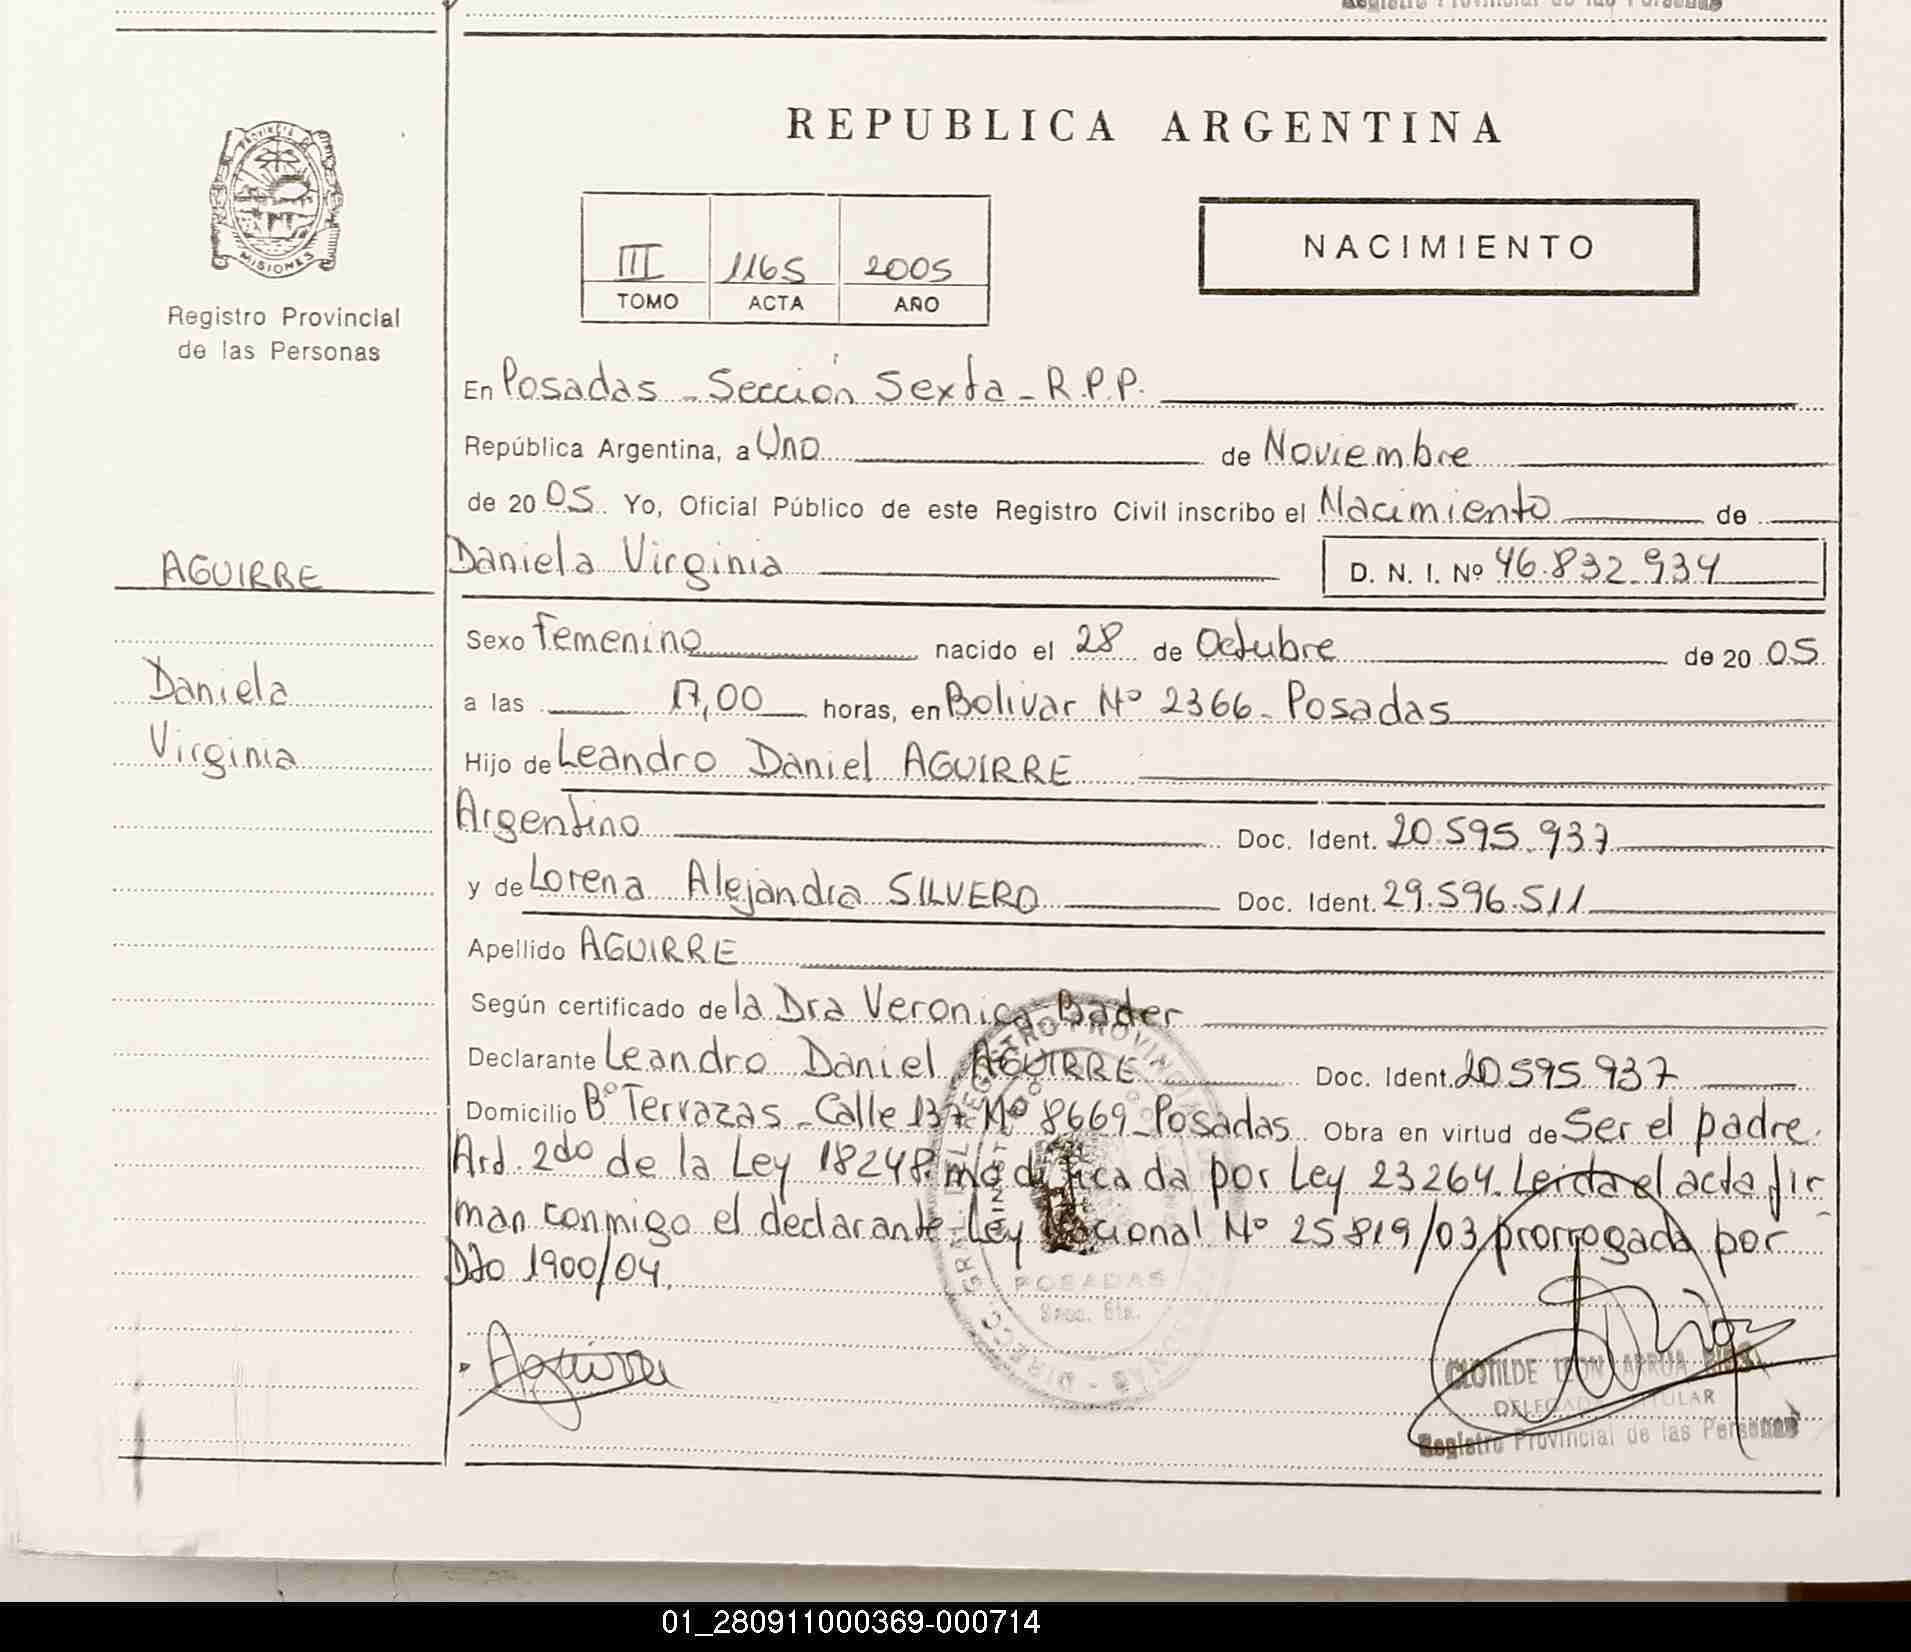 REPUBLICA ARGENTINA
PROVINCIA DE
MISIONES
Registro Provincial
de las Personas
III 1165 2005
TOMO ACTA AÑO
NACIMIENTO
En Posadas - Sección Sexta - R.P.P.
República Argentina, a Uno de Noviembre
de 2005. Yo, Oficial Público de este Registro Civil inscribo el Nacimiento de
AGUIRRE
Daniela Virginia D. N. I. Nº 46.832.934
Sexo Femenino nacido el 28 de Octubre de 2005.
Daniela
a las 17,00 horas, en Bolivar Nº 2366- Posadas
Virginia
Hijo de Leandro Daniel AGUIRRE
Argentino Doc. Ident. 20.595.937
y de Lorena Alejandra SILVERO Doc. Ident. 29.596.511
Apellido AGUIRRE
Según certificado de la Dra Veronica Bader
Declarante Leandro Daniel AGUIRRE Doc. Ident. 20.595.937
Domicilio Bº Terrazas - Calle 137 Nº 8669 - Posadas Obra en virtud de Ser el padre.
Art. 2do de la Ley 18248 modificada por Ley 23264. Leida el acta fir
man conmigo el declarante. Ley Nacional Nº 25819/03 prorrogada por
Dto 1900/04.
POSADAS
Secc. 6ta.
Aguirre
CLOTILDE LEON ARRUA
DELEGADO TITULAR
Registro Provincial de las Personas
01_280911000369-000714